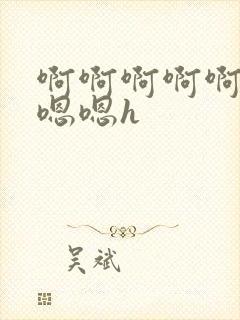 啊啊啊啊啊
嗯嗯h
吴斌